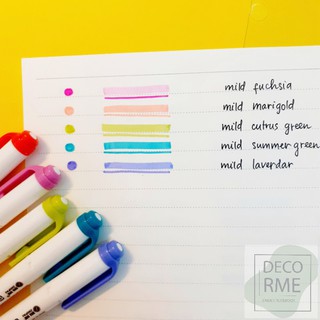 mild fuchsia
mild marigold
mild cutrus green
mild summer green
mild laverdar
DECO
RME